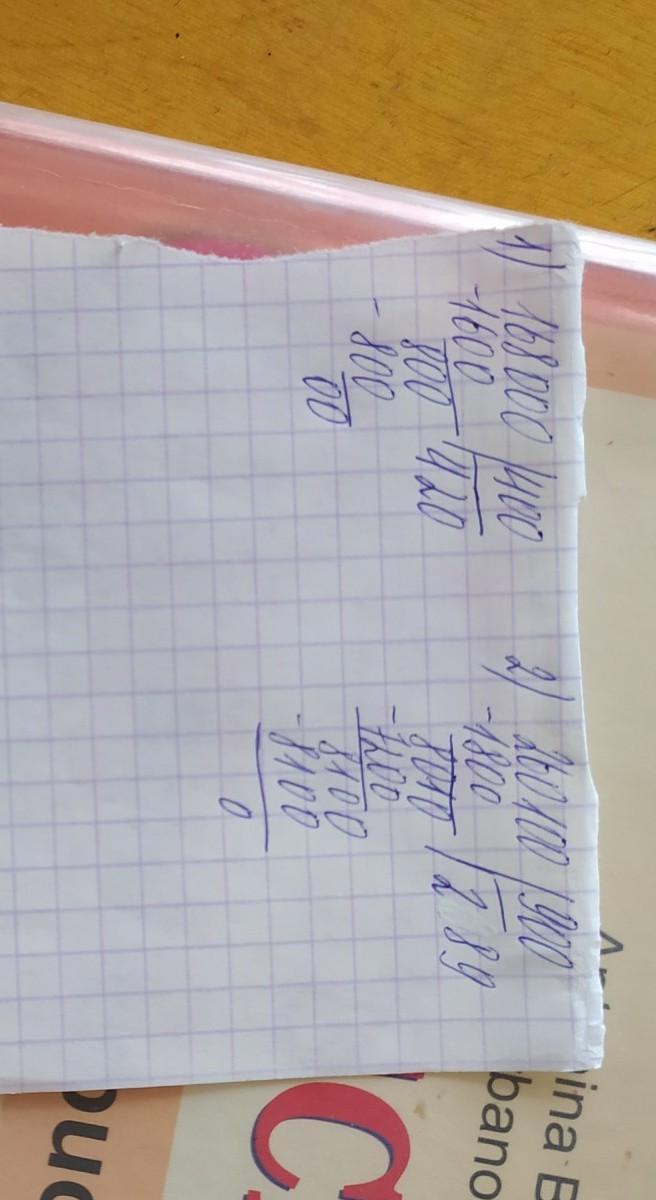 1) 168000 | 400
-1600 | 420
800
- 800
00
2) 260100 | 900
-1800 | 289
8010
-7200
8100
- 8100
0
ina E
bano